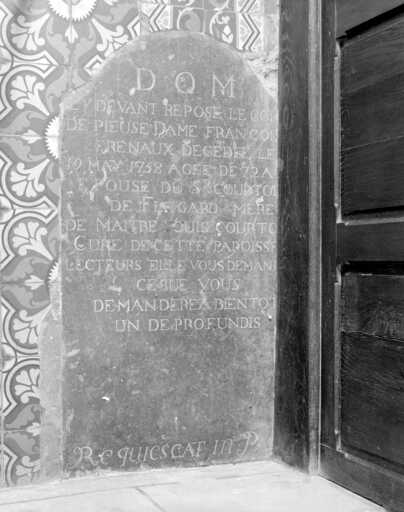 D O M
CY DEVANT REPOSE LE COR
DE PIEUSE DAME FRANCOI
FRENAUX DECEDEE LE
19 MAY 1758 AGEE DE 72 A
EPOUSE DU Sr COURTOI
DE MERE
DE MAITRE LOUIS COURTO
CURE DE CETTE PAROISSE
LECTEURS ELLE VOUS DEMAN
CE QUE VOUS
DEMANDEREZ BIENTOT
UN DE PROFUNDIS
REQUIESCAT IN P